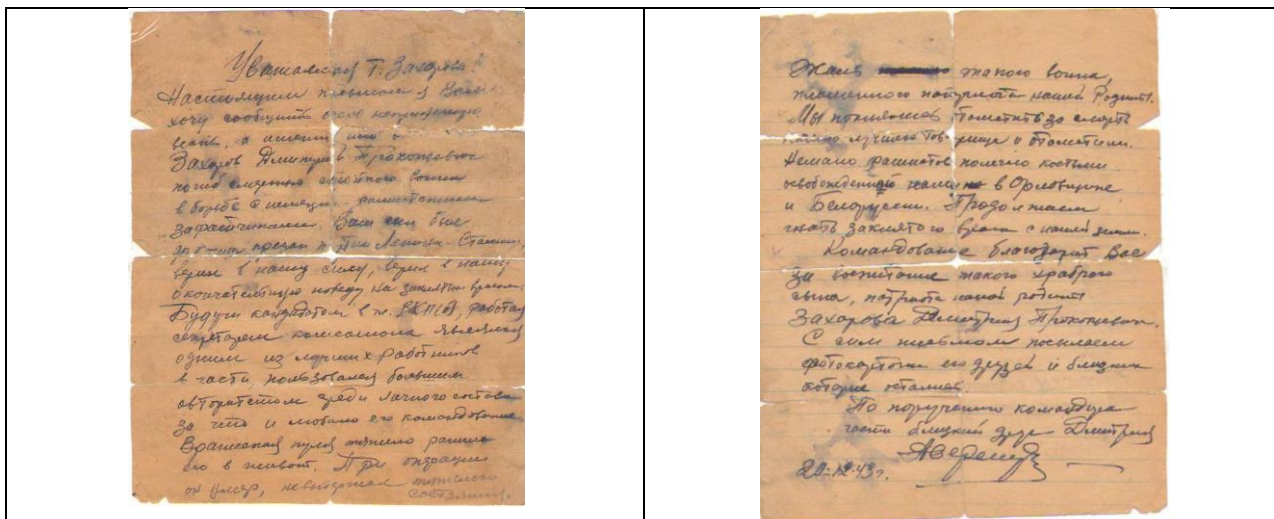 Уважаемая т. Захарова!
Настоящим письмом я Вам
хочу сообщить очень неприятную
весть, а именно, что
Захаров Дмитрий Прокопьевич
погиб смертью воина
в борьбе с немецкими
захватчиками. Ваш сын был
предан партии Ленина-Сталина,
верил в нашу силу, верил в нашу
окончательную победу над заклятым врагом.
Будучи кандидатом в чл. ВКП(б), работая
секретарем комсомола являлся
одним из лучших работников
в части, пользовался большим
авторитетом среди личного состава
за что и любило его командование
Вражеская пуля тяжело ранила
его в живот. При операции
он умер, невыдержав тяжелого
состояния.
Жаль такого воина,
пламенного патриота нашей Родины.
Мы поклялись отомстить за смерть
лучшего товарища и отомстим.
Немало фашистов полегло костьми
освобожденной нами в Орловщине
и Белоруссии. Продолжаем
гнать заклятого врага с нашей земли.
Командование благодарит Вас
за воспитание такого храброго
сына, патриота нашей родины
Захарова Дмитрия Прокопьевич.
С сим письмом посылаем
фотокарточки его друзей и близких
которые остались.
По поручению командира
части близкий друг Дмитрия
20-12-43г.